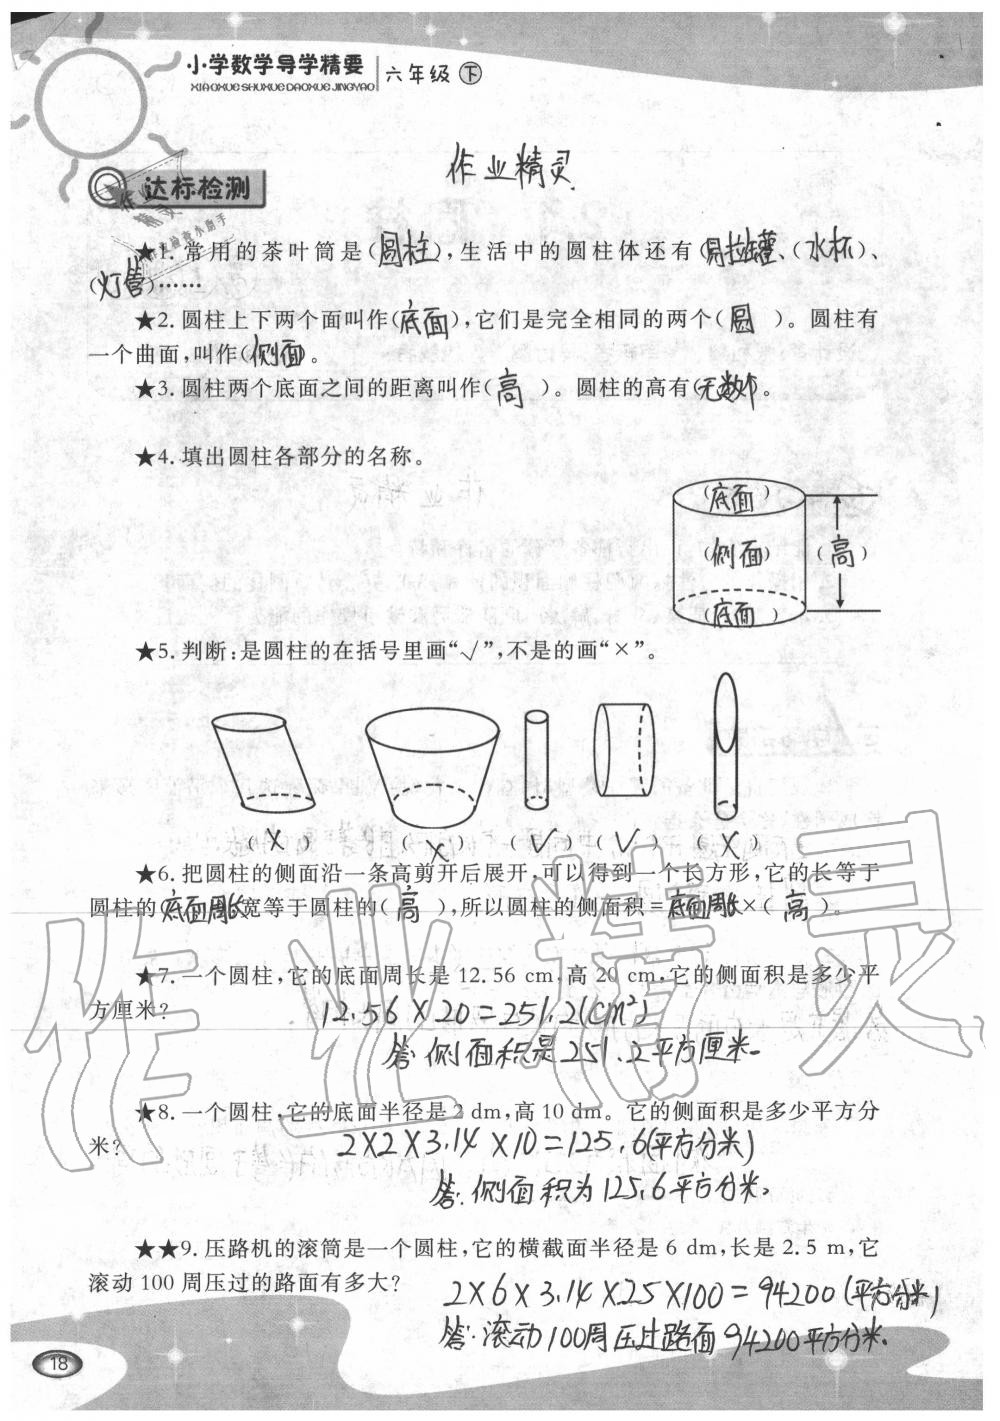 小学数学导学精要 六年级 下
XIAOXUESHUXUEDAOXUEJINGYAO
作业精灵
达标检测
★1.常用的茶叶筒是(圆柱),生活中的圆柱体还有(易拉罐)、(水杯)、
(灯管)……
★2.圆柱上下两个面叫作(底面),它们是完全相同的两个(圆)。圆柱有
一个曲面,叫作(侧面)。
★3.圆柱两个底面之间的距离叫作(高)。圆柱的高有(无数个)。
★4.填出圆柱各部分的名称。
(底面)
(侧面) (高)
(底面)
★5.判断:是圆柱的在括号里画“√”,不是的画“×”。
(×) (×) (√) (√) (×)
★6.把圆柱的侧面沿一条高剪开后展开,可以得到一个长方形,它的长等于
圆柱的(底面周长)宽等于圆柱的(高),所以圆柱的侧面积=底面周长×(高)。
★7.一个圆柱,它的底面周长是12.56 cm,高20 cm,它的侧面积是多少平
方厘米? 12.56×20=251.2(cm²)
答:侧面积是251.2平方厘米.
★8.一个圆柱,它的底面半径是2 dm,高10 dm。它的侧面积是多少平方分
米? 2×2×3.14×10=125.6(平方分米)
答:侧面积为125.6平方分米。
★★9.压路机的滚筒是一个圆柱,它的横截面半径是6 dm,长是2.5 m,它
滚动100周压过的路面有多大? 2×6×3.14×25×100=94200(平方分米)
答:滚动100周压过路面94200平方分米.
18
作业精灵